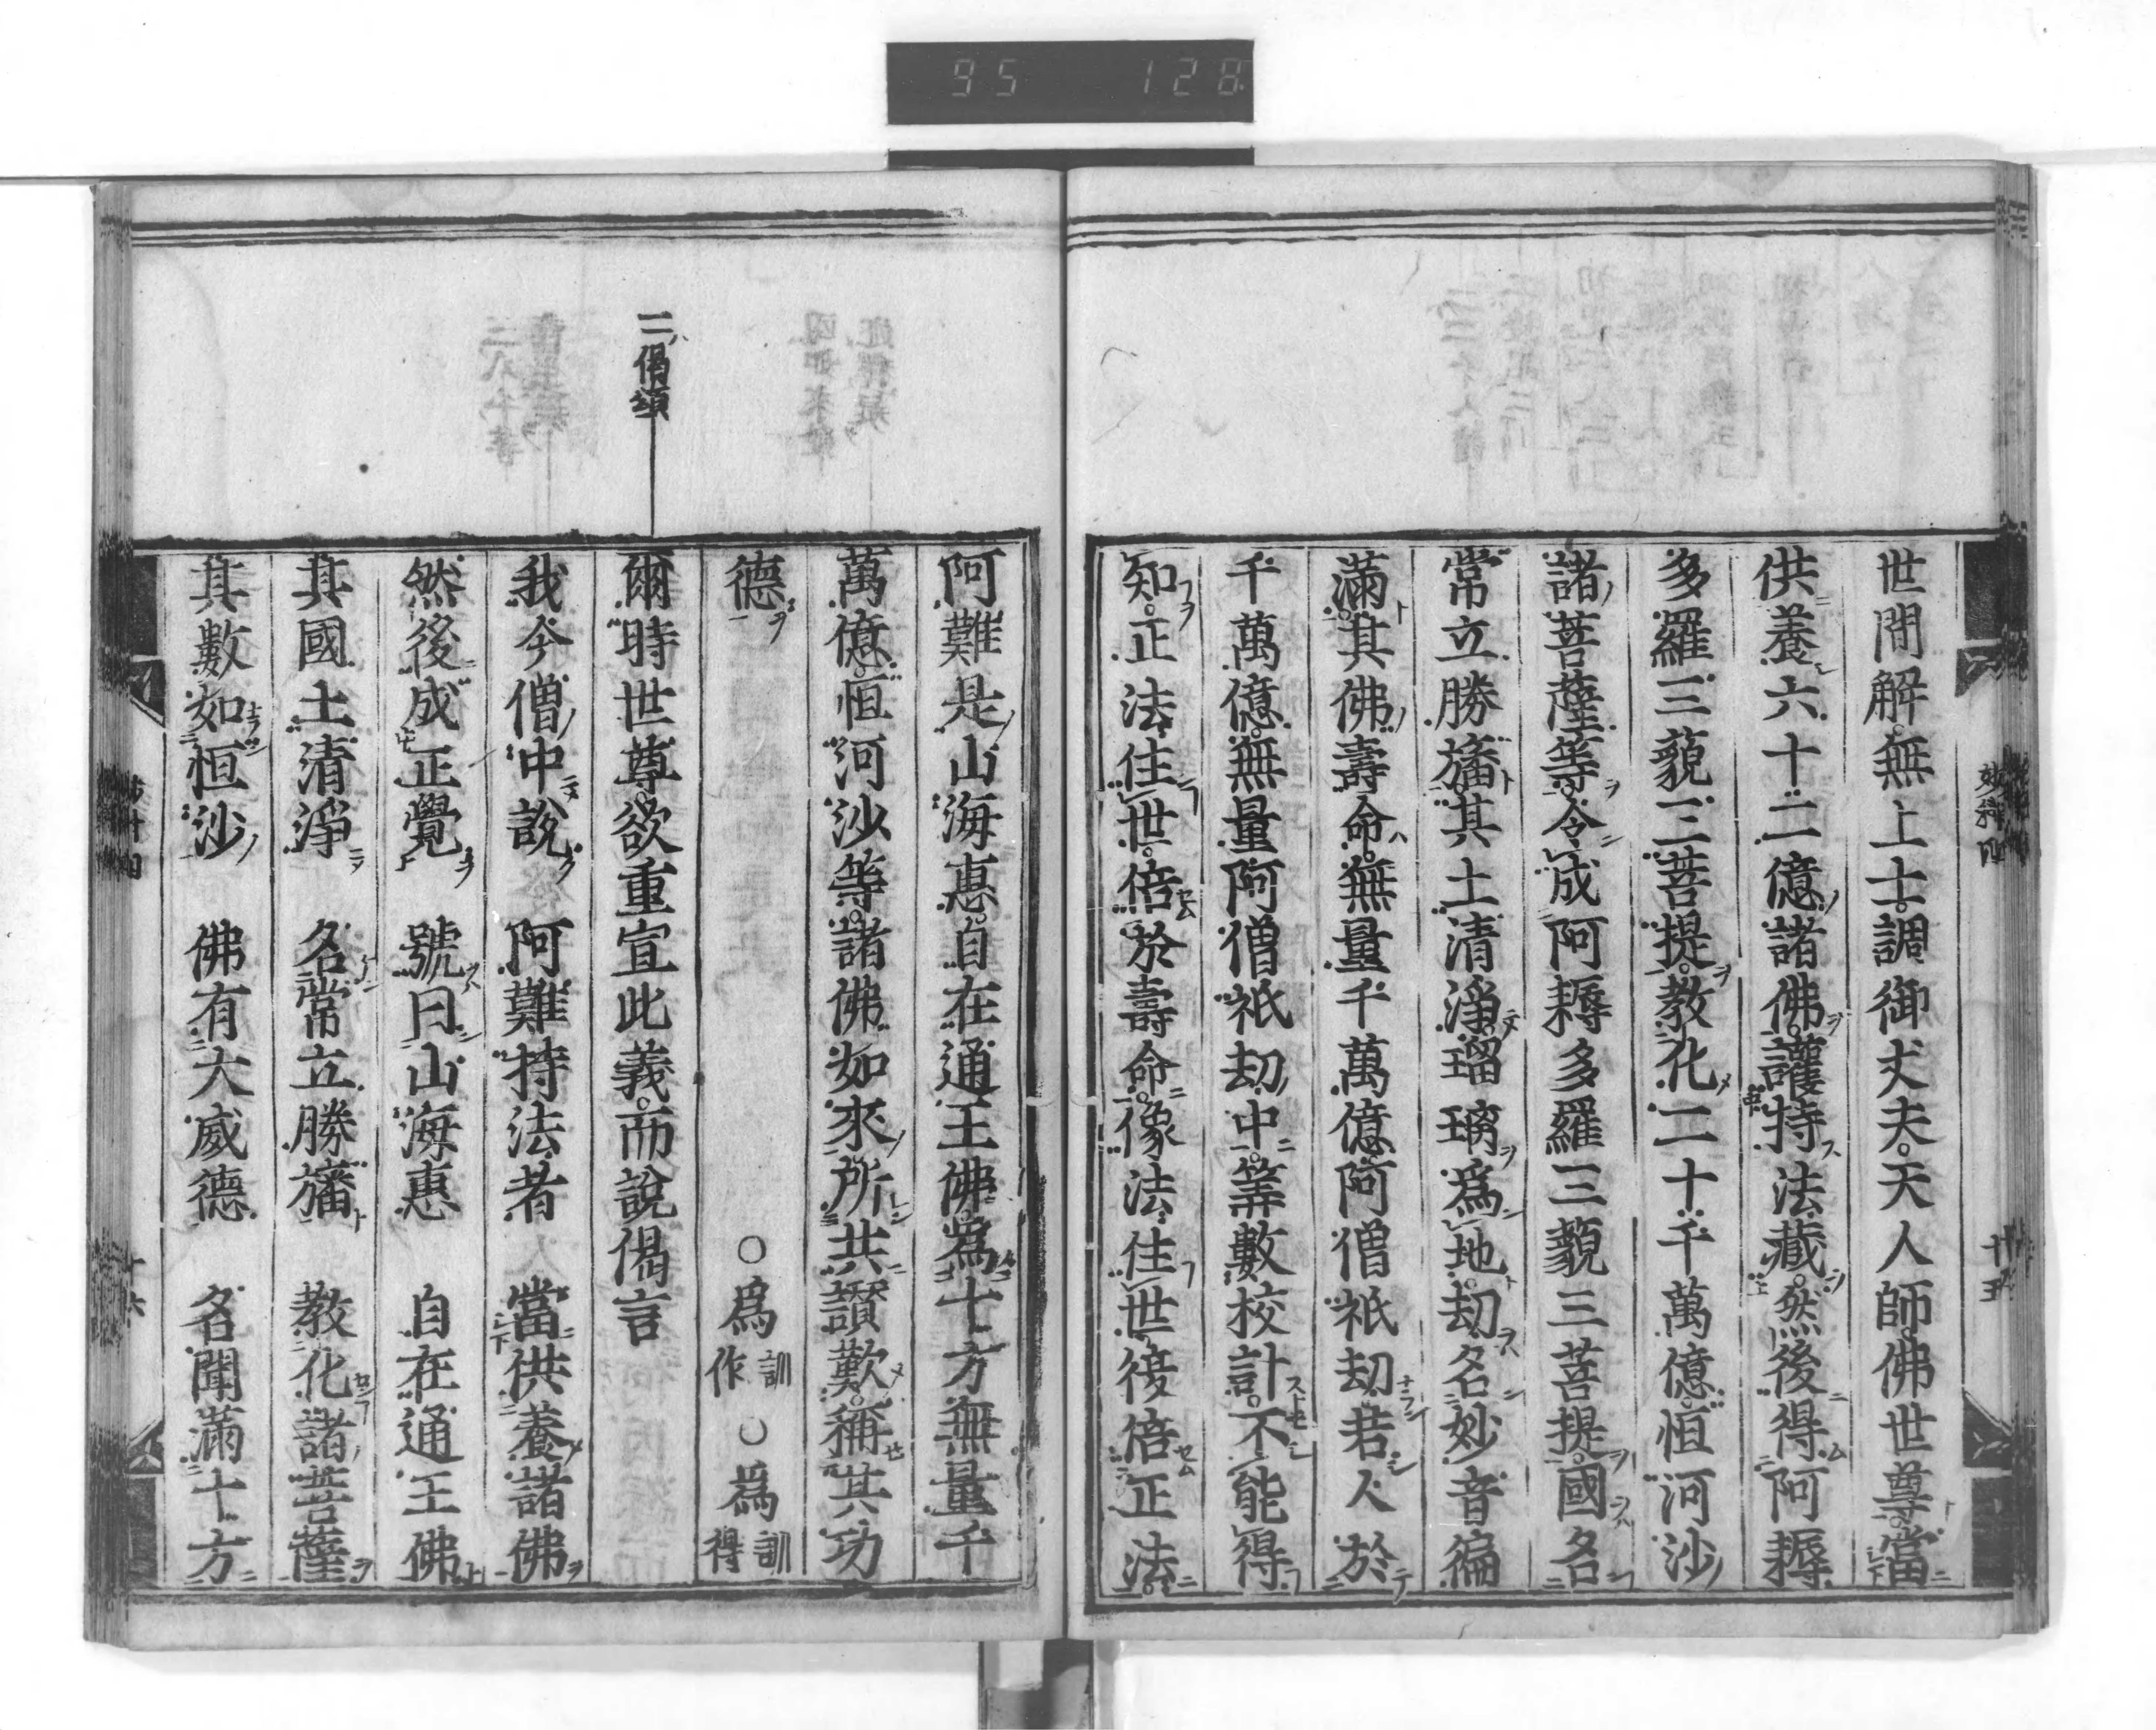 95 128
世間解無上士調御丈夫天人師佛世尊當
供養六十二億諸佛護持法藏然後得阿耨
多羅三藐三菩提教化二十千萬億恒河沙
諸菩薩等令成阿耨多羅三藐三菩提國名
常立勝旛其土清淨瑠璃爲地劫名妙音徧
滿其佛壽命無量千萬億阿僧祇劫若人於
千萬億無量阿僧祇劫中筭數校計不能得
知正法住世倍於壽命像法住世復倍正法
二偈頌
阿難是山海惠自在通王佛爲十方無量千
萬億恒河沙等諸佛如來所共讃歎稱其功
德 ○爲訓作 ○爲訓得
爾時世尊欲重宣此義而說偈言
我今僧中說 阿難持法者 當供養諸佛
然後成正覺 號曰山海惠 自在通王佛
其國土清淨 名常立勝旛 教化諸菩薩
其數如恒沙 佛有大威德 名聞滿十方